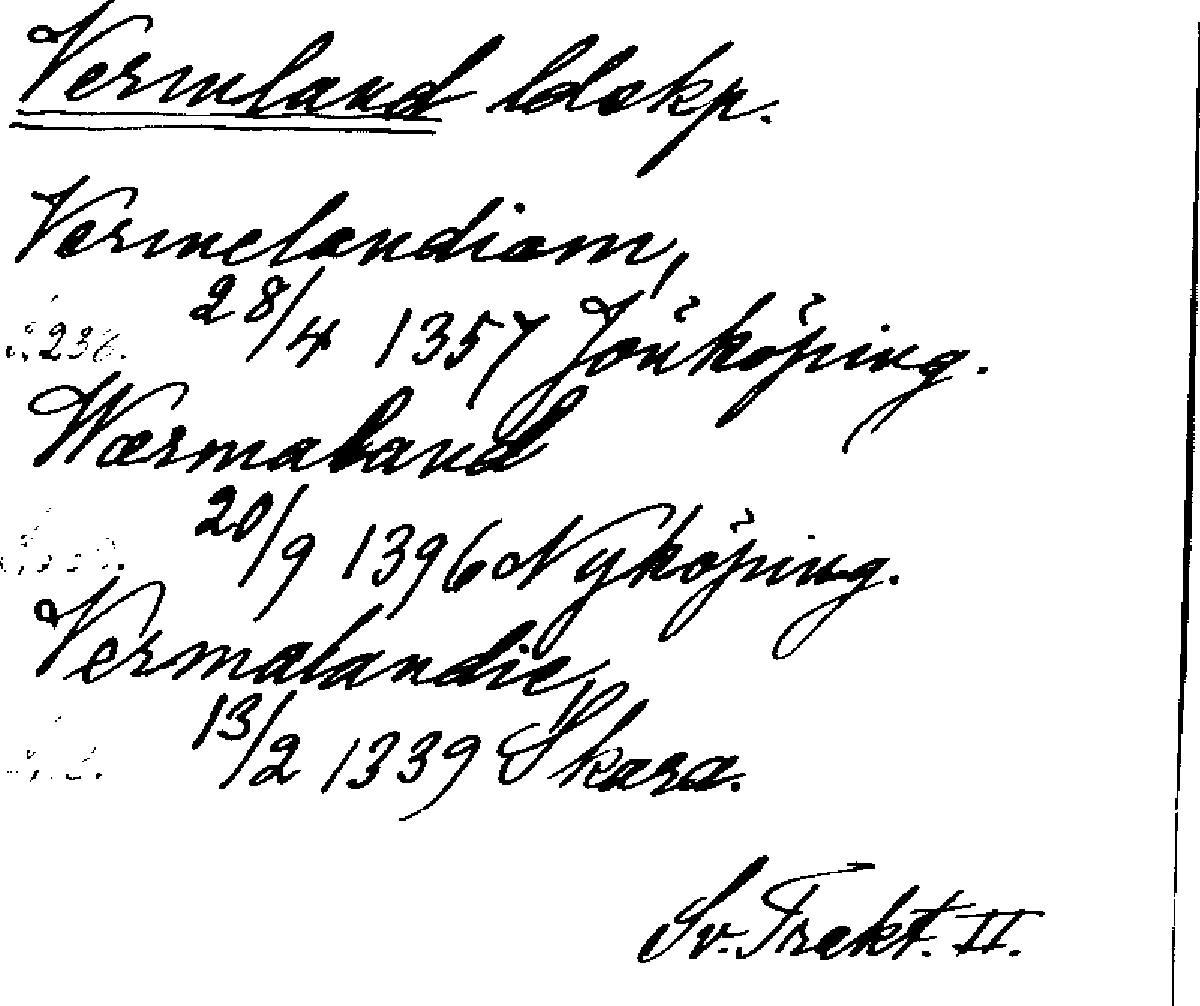 Vermland ldskp.
Vermelandiam,
28/4 1357 Jönköping.
S. 236.
Wærmaland
20/9 1396 Nyköping.
Vermalandie,
13/2 1339 Skara.
Sv. Trakt. II.